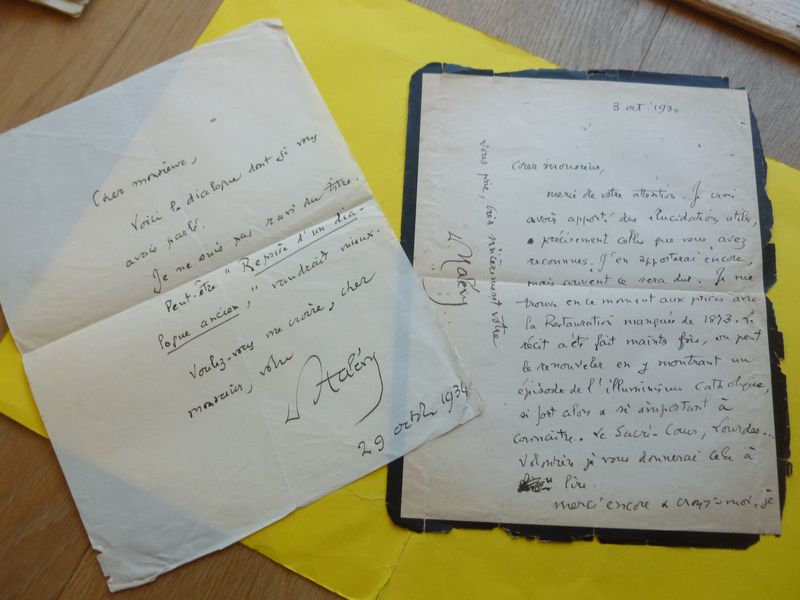 Cher monsieur,
Voici le dialogue dont je vous
avais parlé.
Je ne suis pas ravi du titre.
Peut-être "Reprise d'un dia-
logue ancien," vaudrait mieux.
Voulez-vous me croire, cher
monsieur, votre
D Halévy
29 octobre 1934
3 oct. 1930
Cher monsieur,
merci de votre attention. Je crois
avoir apporté des élucidations utiles,
précisément celles que vous avez
reconnues. J'en apporterai encore,
mais souvent ce sera dur. Je me
trouve en ce moment aux prises avec
la Restauration manquée de 1873. Le
récit a été fait maintes fois, on peut
le renouveler en y montrant un
épisode de l'illuminisme catholique,
si fort alors & si important à
connaître. Le Sacré-Cœur, Lourdes...
Volontiers je vous donnerai cela à
lire.
Merci encore & croyez-moi, je
vous prie, bien sincèrement votre
D Halévy